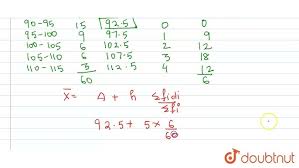 90-95 15 92.5 0 0
95-100 9 97.5 1 9
100-105 6 102.5 2 12
105-110 6 107.5 3 18
110-115 3 112.5 4 12
60 6
x̄ = A + h Σfidi/Σfi
92.5 + 5 × 6/60
doubtnut